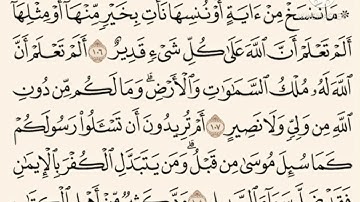 * مَا نَنسَخْ مِنْ ءَايَةٍ أَوْ نُنسِهَا نَأْتِ بِخَيْرٍ مِّنْهَآ أَوْ مِثْلِهَآ
أَلَمْ تَعْلَمْ أَنَّ ٱللَّهَ عَلَىٰ كُلِّ شَىْءٍ قَدِيرٌ ١٠٦ أَلَمْ تَعْلَمْ أَنَّ
ٱللَّهَ لَهُۥ مُلْكُ ٱلسَّمَٰوَٰتِ وَٱلْأَرْضِ ۗ وَمَا لَكُم مِّن دُونِ
ٱللَّهِ مِن وَلِىٍّ وَلَا نَصِيرٍ ١٠٧ أَمْ تُرِيدُونَ أَن تَسْـَٔلُوا۟ رَسُولَكُمْ
كَمَا سُئِلَ مُوسَىٰ مِن قَبْلُ ۗ وَمَن يَتَبَدَّلِ ٱلْكُفْرَ بِٱلْإِيمَٰنِ
فَقَدْ ضَلَّ سَوَآءَ ٱلسَّبِيلِ وَدَّ كَثِيرٌ مِّنْ أَهْلِ ٱلْكِتَٰبِ